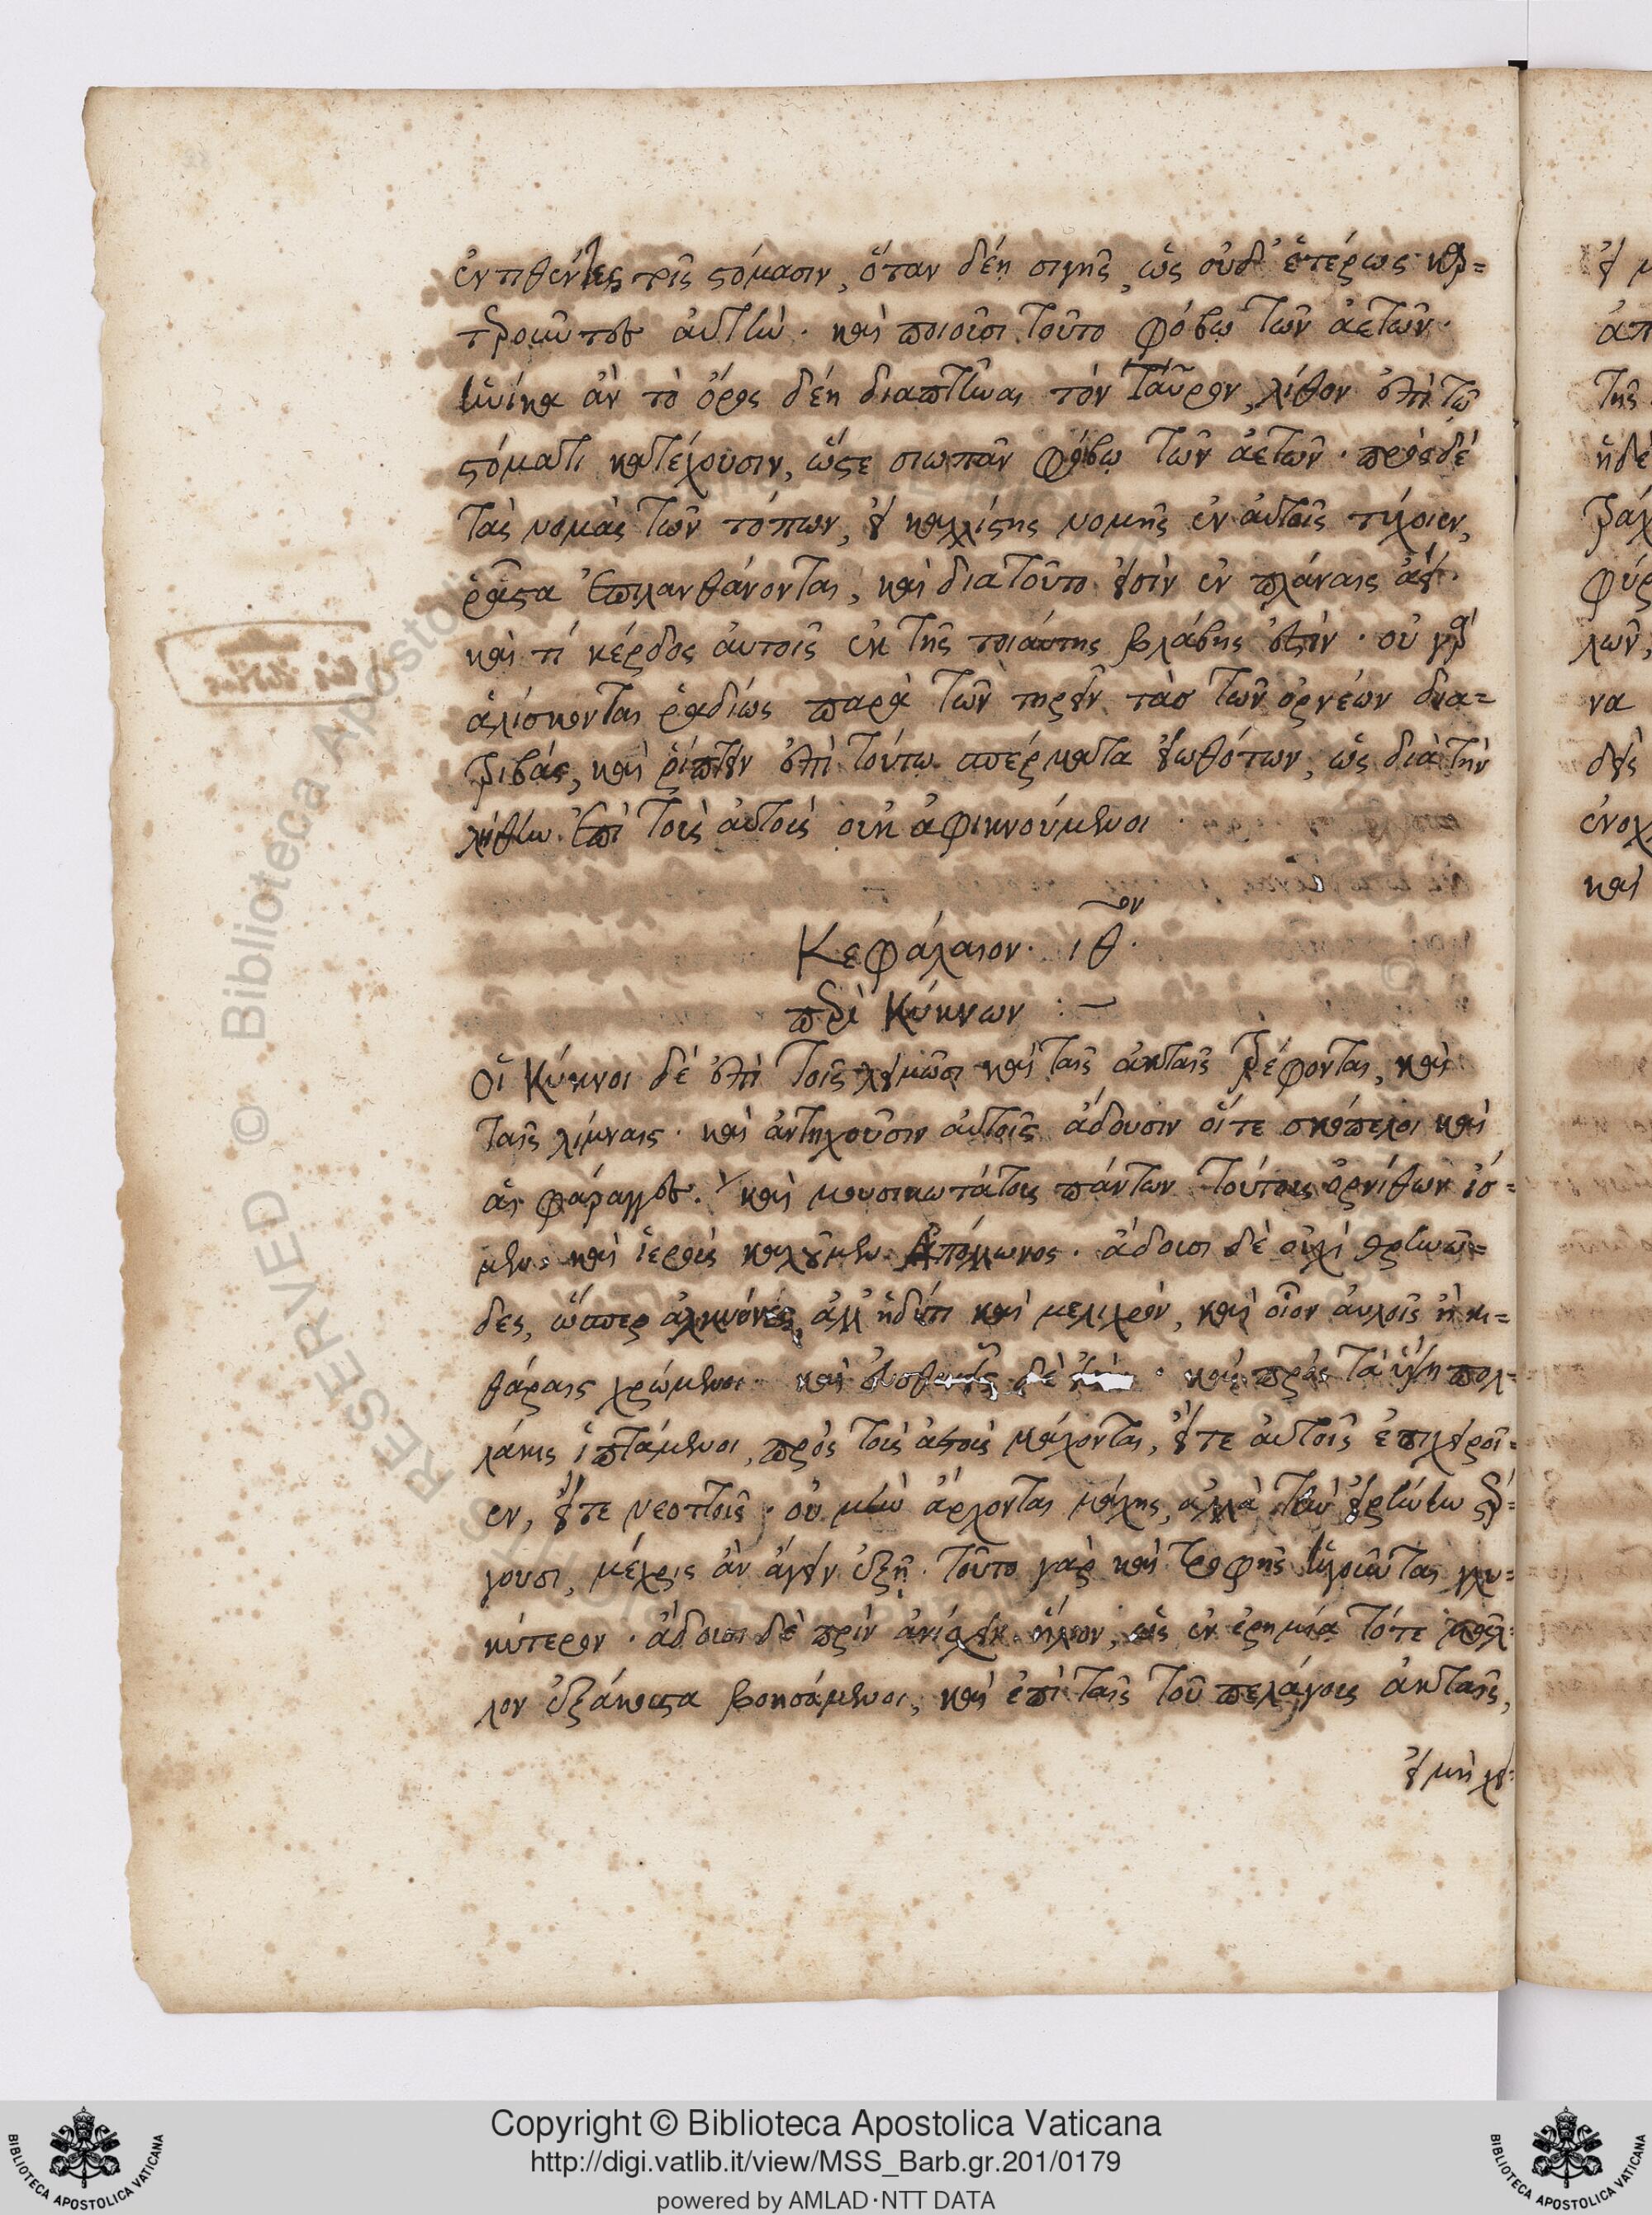 ἐντιθέντες τοῖς στόμασιν, ὅταν δέῃ σιγῆς, ὡς οὐδ' ἑτέρως κρα=
τοῦντες αὐτήν. καὶ ποιοῦσι τοῦτο φόβῳ τῶν ἀετῶν.
ἡνίκα ἂν τὸ ὄρος δέῃ διαπτῆναι τὸν ταῦρον, λίθον ἐπὶ τῷ
στόματι κατέχουσιν, ὥστε σιωπᾶν φόβῳ τῶν ἀετῶν. πρὸς δὲ
τὰς νομὰς τῶν τόπων, εἰ καλλίστης νομῆς ἐν αὐτοῖς τύχοιεν,
ῥᾷστα ἐπιλανθάνονται, καὶ διατοῦτο εἰσὶν ἐν πλάναις ἀεί.
καὶ τί κέρδος αὐτοῖς ἐκ τῆς τοιάυτης βλάβης ἐστίν. οὐ γὰρ
ἁλίσκονται ῥαδίως παρὰ τῶν τηρεῖν τὰσ τῶν ὀρνέων δια=
τριβάς, καὶ ῥίπτειν ἐπὶ τούτῳ σπέρματα εἰωθότων, ὡς διὰ τὴν
λήθην ἐπὶ τοὺς αὐτοὺς οὐκ ἀφικνούμενοι
Κεφάλαιον. ιθ.ον
περὶ Κύκνων :—
Οἱ Κύκνοι δὲ ἐπὶ τοῖς λειμῶσι καὶ ταῖς ἀκταῖς τρέφονται, καὶ
ταῖς λίμναις. καὶ ἀντηχοῦσιν αὐτοῖς ἄδουσιν οἵ τε σκόπελοι καὶ
αἱ φάραγγες. καὶ μουσικωτάτους πάντων τούτους ὀρνίθων ἴσ=
μεν. καὶ ἱεροὺς καλοῦμεν Ἀπόλλωνος. ἄδουσι δὲ οὐχὶ θρηνῶ=
δες, ὥσπερ ἀλκυόνες, ἀλλ' ἡδύ τι καὶ μελιχρόν, καὶ οἷον αὐλοῖς ἢ κι=
θάραις χρώμενοι. καὶ δὲ . καὶ πρὸς τὰ ὕψη πολ=
λάκις ἱπτάμενοι, πρὸς τοὺς ἀετοὺς μάχονται, εἴτε αὐτοῖς ἐπιχειροῖ=
εν, εἴτε νεοττοῖς. οὐ μὴν ἄρχονται μάχης, ἀλλὰ τὴν εἰρήνην στέρ=
γουσι, μέχρις ἂν ἄγειν ἐξῇ. τοῦτο γὰρ καὶ τροφῆς ἡγοῦνται γλυ=
κύτερον. ἄδουσι δὲ πρὶν ἀνίσχειν ἥλιον, ὡς ἐν ἐρημίᾳ τότε μᾶλ=
λον ἐξάκουστα βοησάμενοι, καὶ ἐπὶ ταῖς τοῦ πελάγους ἀκταῖς,
εἰ μὴ χει=
Copyright © Biblioteca Apostolica Vaticana
http://digi.vatlib.it/view/MSS_Barb.gr.201/0179
powered by AMLAD·NTT DATA